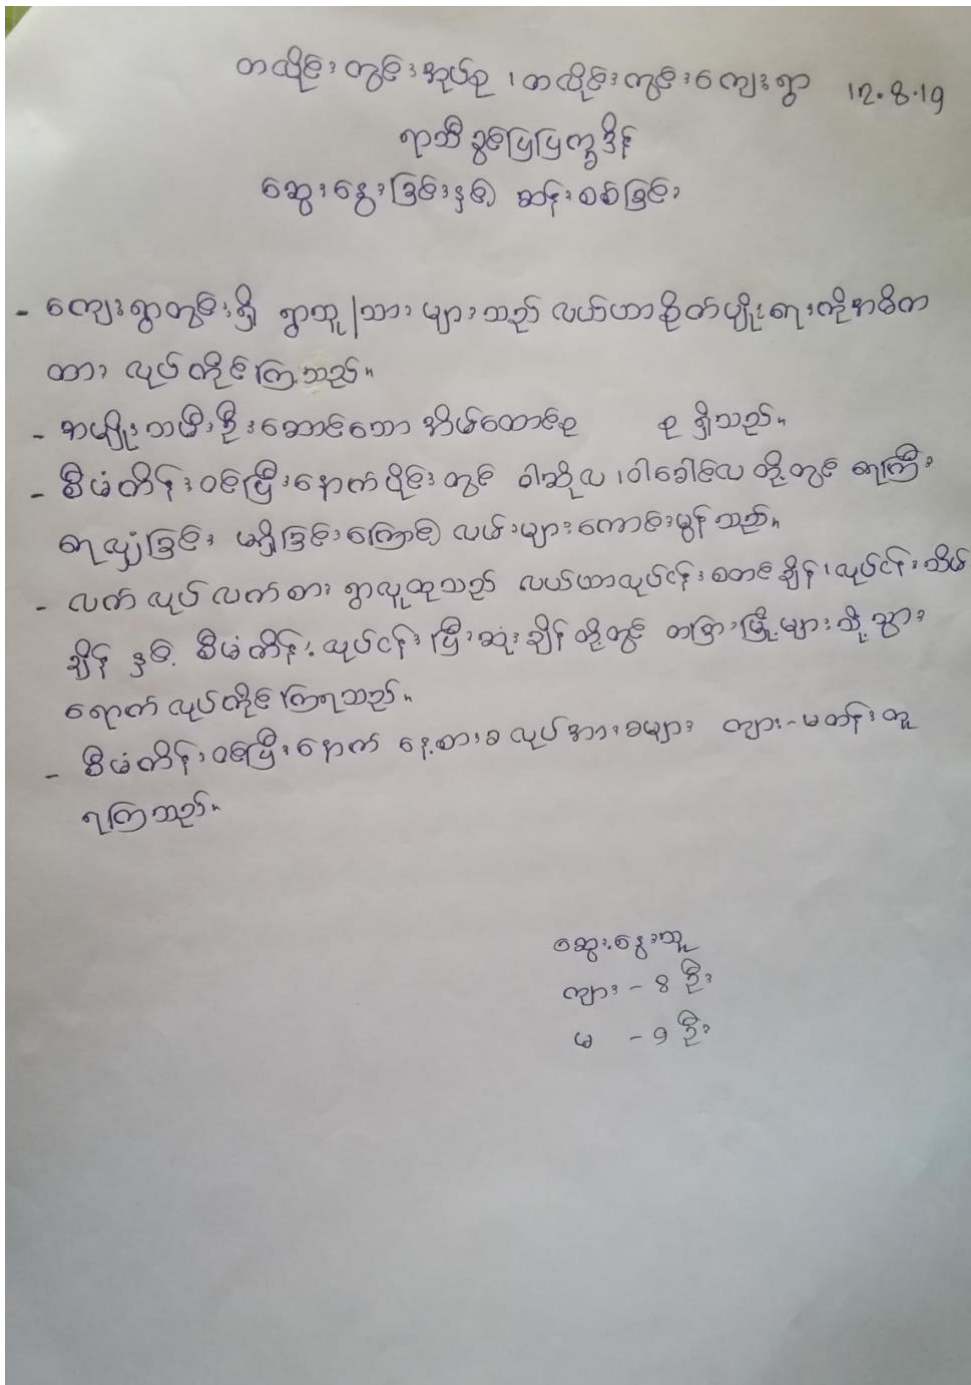 တလိုင်းကွင်းအုပ်စု ၊ တလိုင်းကွင်းကျေးရွာ 12.8.19
ရာသီခွင်ပြပြက္ခဒိန်
ဆွေးနွေးခြင်းနှင့် ဆန်းစစ်ခြင်း
- ကျေးရွာတွင်းရှိ ရွာသူ/သား များသည် လယ်ယာစိုက်ပျိုးရေးကိုအဓိက
ထား လုပ်ကိုင်ကြသည်။
- အမျိုးသမီးဦးဆောင်သော အိမ်ထောင်စု စု ရှိသည်။
- စီမံကိန်းဝင်ပြီးနောက်ပိုင်းတွင် ဝါဆိုလ ၊ ဝါခေါင်လတို့တွင် ရေကြီး
ရေလျှံခြင်း မရှိခြင်းကြောင့် လမ်းများကောင်းမွန်သည်။
- လက်လုပ်လက်စား ရွာလူထုသည် လယ်ယာလုပ်ငန်းစတင်ချိန် ၊ လုပ်ငန်းသိမ်
ချိန် နှင့် စီမံကိန်းလုပ်ငန်းပြီးဆုံးချိန်တို့တွင် တခြားမြို့များသို့သွား
ရောက်လုပ်ကိုင်ကြရသည်။
- စီမံကိန်းဝင်ပြီးနောက် နေ့စားခ လုပ်အားခများ ကျား-မတန်းတူ
ရကြသည်။
ဆွေးနွေးသူ
ကျား - ၆ ဦး
မ - ၁ ဦး